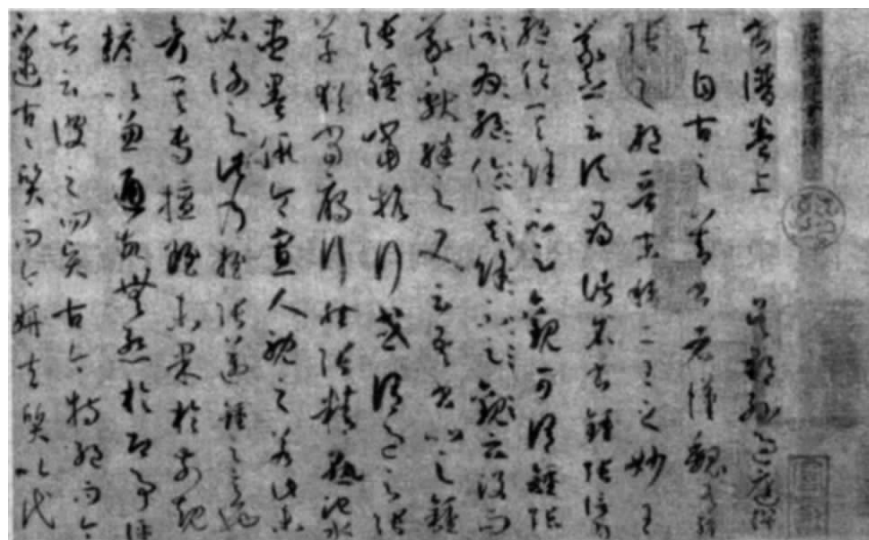 書譜卷上 吳郡孫過庭撰
夫自古之善書者漢魏有鍾
張之絕晉末稱二王之妙王
羲之云頃尋諸名書鍾張信為
絕倫其餘不足觀可謂鍾張
信為絕倫其餘不足觀云沒而
羲獻繼之又云吾書比之鍾
張鍾當抗行或謂過之張
草猶當雁行然張精熟池水
盡墨假令寡人耽之若此未
必謝之此乃推張邁鍾之意也
考其專擅雖未果於前規
摭以兼通故無慚於即事評
者云彼之四賢古今特絕而今
不逮古古質而今妍夫質以代